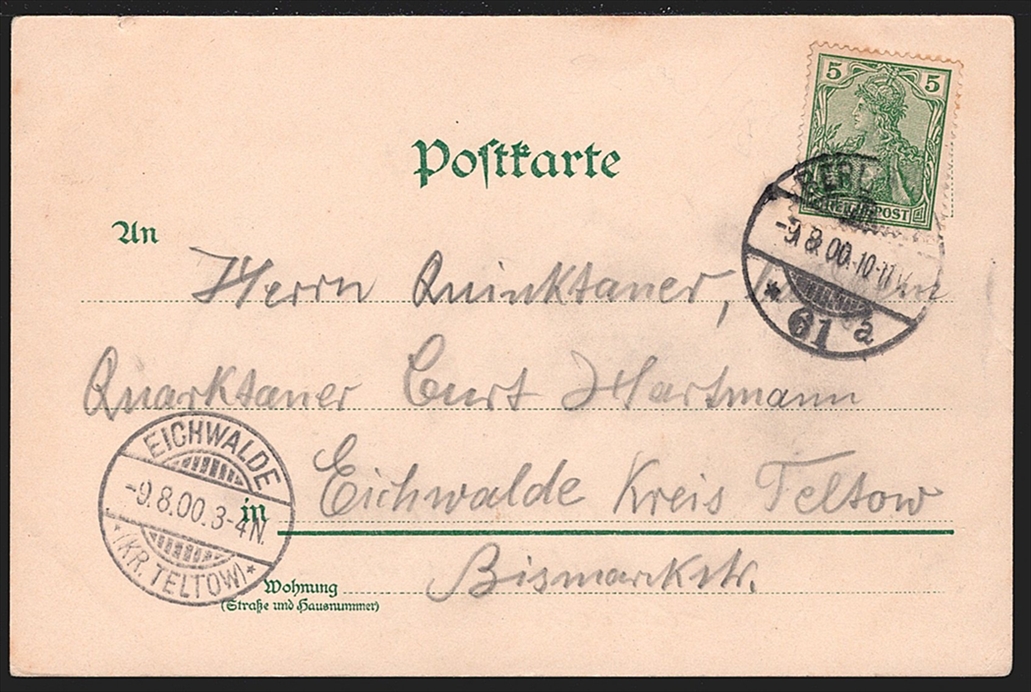 5 5
Postkarte
BERL
-9.8.00.10-11V.
* 61 a
An
Herrn Quinktaner,
Quarktaner Curt Hartmann
EICHWALDE
-9.8.00.3-4N.
*(KR. TELTOW)*
in Eichwalde Kreis Teltow
Wohnung Bismarckstr.
(Straße und Hausnummer)